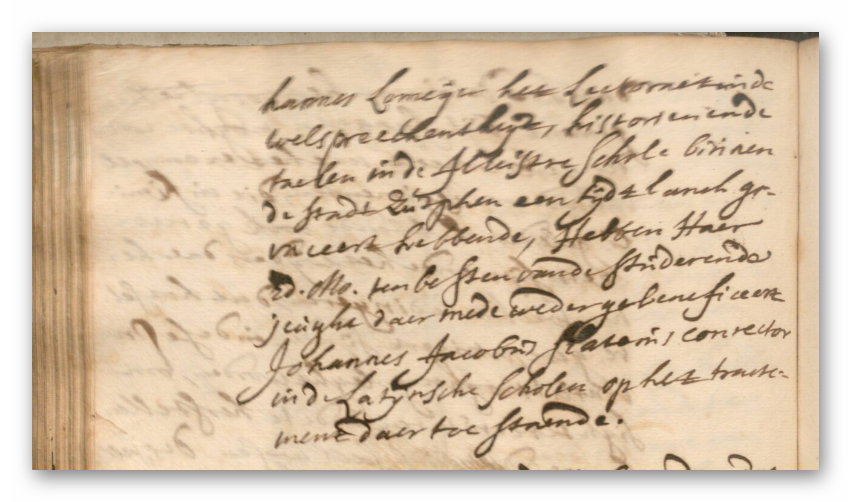 hannes Lomeijer het Lectoraet in de
welspreeckentheijt, historien ende
taelen in de Illustre Schole binnen
de stadt Zutphen een tijdt lanck ge-
vaceert hebbende, Hebben Haer
Ed. Mo. ten besten vande studerende
jeught daer mede weder gebeneficeert
Johannes Jacobus conrector
in de Latijnsche Scholen op het tracte-
ment daer toe staende.